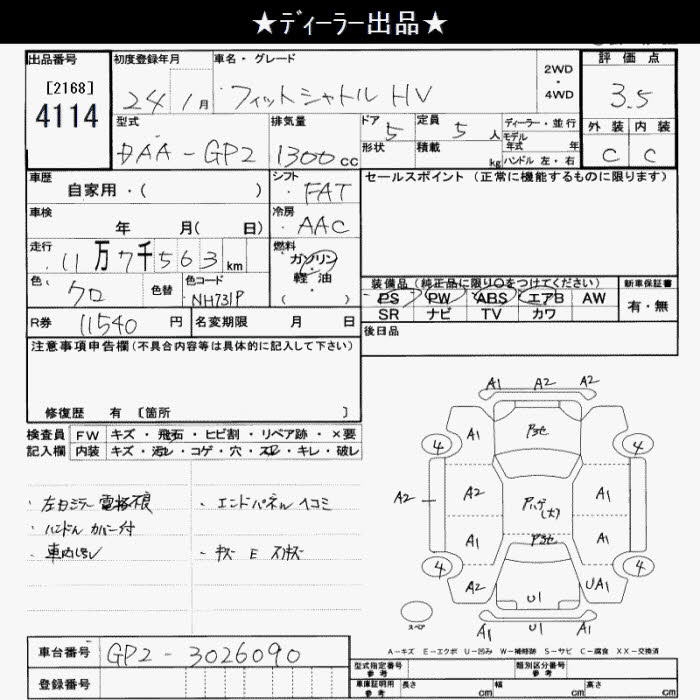 ★ディーラー出品★
出品番号
[2168]
4114
初度登録年月
24 1月
車名・グレード
フィットシャトル HV
2WD
・
4WD
評価点
3.5
型式
DAA-GP2
排気量
1300cc
ドア
5
形状
定員
5人
積載
kg
ディーラー・並行
モデル
年式 年
ハンドル 左・右
外装 内装
C C
車歴
自家用・( )
シフト
FAT
セールスポイント (正常に機能するものに限ります)
車検
年 月( 日)
冷房
AAC
走行
11万7千563km
燃料
ガソリン
軽・油
( )
色
クロ
色替
色コード
NH731P
装備品 (純正品に限り○をつけてください)
PS PW ABS エアB AW
SR ナビ TV カワ
新車保証書
有・無
R券
11540円
名変期限 月 日
後日品
注意事項申告欄(不具合内容等は具体的に記入して下さい)
修復歴 有 [箇所 ]
検査員
記入欄
FW キズ・飛石・ヒビ割・リペア跡・×要
内装 キズ・汚レ・コゲ・穴・スレ・キレ・破レ
・左右ミラー電格不良
・ハンドルカバー付
・エンドパネルヘコミ
・キズ E スリキズ
A1 A2 A2
A1 A1
4 4
A2 A2 A1
(大)
A1 A1
4 4
A2 UA1
U1
スペア
A1 U1 A1
A-キズ E-エクボ U-凹み W-補修跡 S-サビ C-腐食 XX-交換済
車台番号
GP2-3026090
登録番号
型式指定番号
参考
類別区分番号
参考
車庫証明用
参考
長さ cm
幅 cm
高さ cm